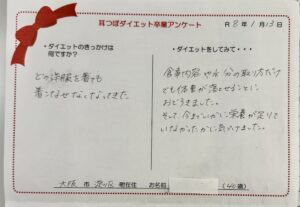 耳つぼダイエット卒業アンケート
R 8年 1月 13日
・ダイエットのきっかけは
何ですか?
どの洋服を着ても
着こなせなくなってきた。
・ダイエットをしてみて・・・
食事内容や水分の取り方だけ
でも体重が落とせることに
おどろきました。
そして今までいかに栄養が足りて
いなかったかに気づけました。
大阪 市 淀川区 現在住 お名前 (40歳)